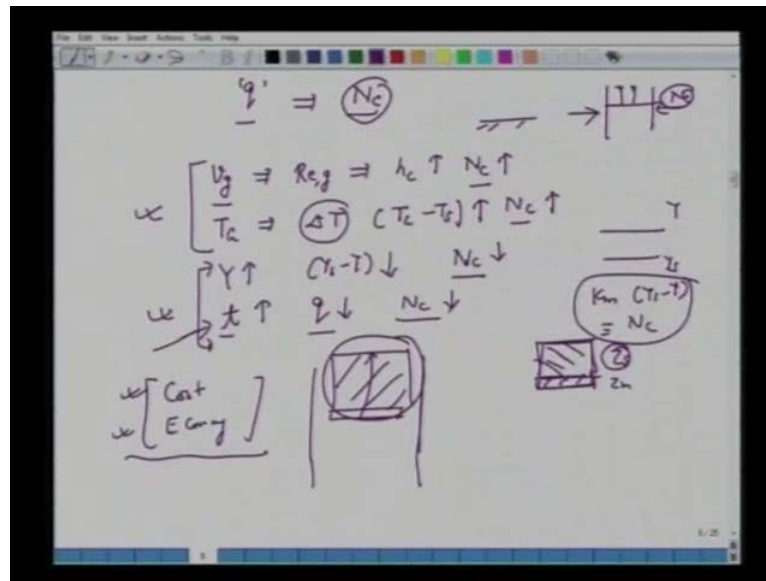 File Edit View Insert Actions Tools Help
'q' ⇒ Nc
→ Nc
Vg ⇒ Re,g ⇒ hc ↑ Nc ↑
TG ⇒ ΔT (TG - Ts) ↑ Nc ↑
Y
Y ↑ (Ys - Y) ↓ Nc ↓
Ys
t ↑ q ↓ Nc ↓
Km (Ys - Y)
= Nc
Cost
2m
6/25
6